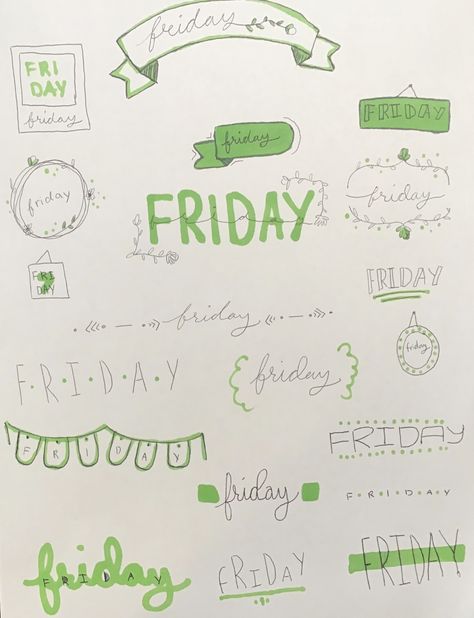 friday
FRI
DAY
friday
FRIDAY
friday
friday
FRIDAY
friday
friday
FRI
DAY
FRIDAY
friday
friday
F·R·I·D·A·Y
friday
F R I D A Y
FRIDAY
friday
F·R·I·D·A·Y
friday
F R I D A Y
fRIDaY
FRIDAY